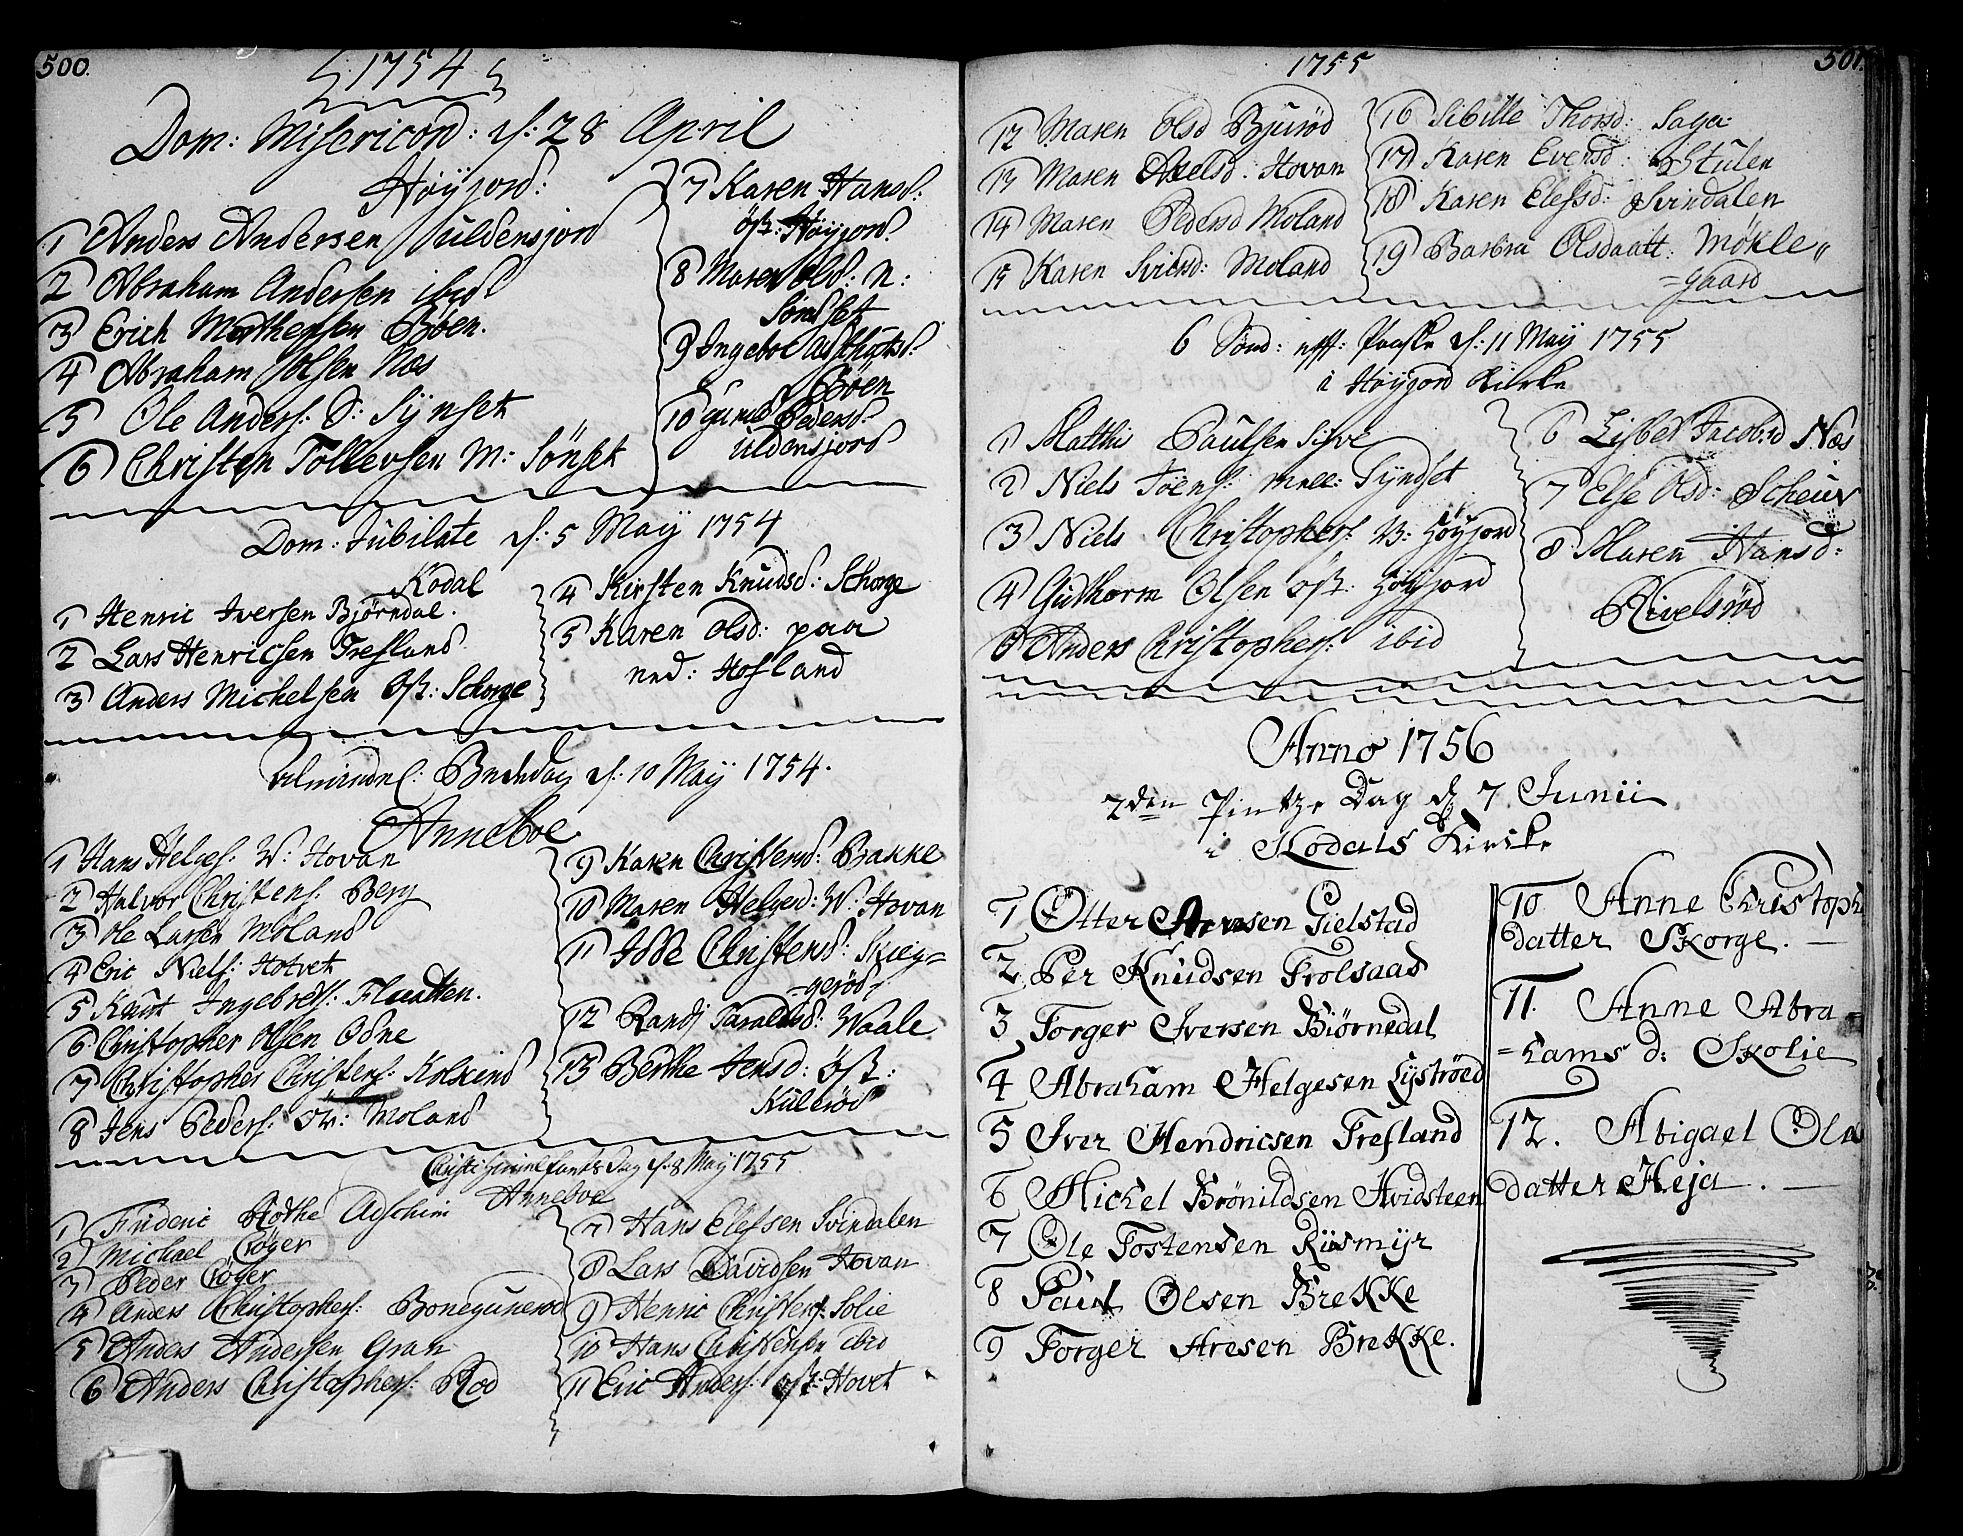 500.
1754
Dom: Misericord: d: 28 April
Høyjord:
1 Anders Andersen Juldensjord
2 Abraham Andersen ibid
3 Erich Mathessen Bøen.
4 Abraham Joesen Næs
5 Ole Anders: S: Synset
6 Christen Tollersen M: Sønset
7 Karen Hansd:
øst: Høyjord.
8 Maren Olsd: N:
Søndset
9 Ingebor
Bøen
10 Pedersd:
uldensjord
Dom: Jubilate d: 5 May 1754
Kodal
1 Henric Iversen Bjørndal.
2 Lars Henricsen Trefland.
3 Anders Michelsen Øst: Schorge
4 Kirsten Knudsd: Schorge
5 Karen Olsd: paa
ned: Hofland
d. 10 May 1754.
Anneboe
1 Hans Helges: W: Hovan
2 Halvor Christens: Berg
3 Ole Larsen Moland
4 Eric Niels: Hotvet
5 Knut Ingebrets: Fluatten.
6 Christopher Olsen Odne
7 Christopher Christens: Kolkind
8 Jens Peders: Øv: Moland
9 Karen Christensd: Brakke
10 Maren Helgesd: W: Hovan
11 Idde Christensd: Skieg=
=gerød
12 Randj Taraldsd: Waale
13 Berthe Jensd: Øst:
Kulerød
Christi Himmelfarts Dag d. 8 May 1755
Anneboe
1 Frideric Rothe Aeschim
2 Michael Crøger
3 Peder Crøger
4 Anders Christophers: Bonegunerød
5 Anders Andersen Gran
6 Anders Christophers: Rød
7 Hans Elefsen Svindalen
8 Lars Davidsen Hovan
9 Henric Christens: Solie
10 Hans Christensen ibid
11 Eric Anders: Øst: Hovet
1755
501.
12 Maren Olsd Bjurød
13 Maren Axelsd: Hovan
14 Maren Pedersd Moland
15 Karen Sviersd: Moland
16 Sibille Thorsd: Saga
17 Karen Eversd: Stulen
18 Karen Elefsd: Svindalen
19 Barbra Olsdaatt: Møkle"
=gaard
6 Sønd: efft: Paaske d: 11 May 1755
i Høyjord Kirke
1 Matthis Paulsen Sisve
2 Niels Joens: mell: Syndset
3 Niels Christophers: V: Høyjord
4 Guthorm Olsen Øst: Høyjord
5 Anders Christophers: ibid
6 Lisbet Jacobsd Næs
7 Else Olsd: Scheuv
8 Maren Hansd:
Rivelsrød
Anno 1756
2den Pintze Dag d 7 Junii
i Kodals Kircke
1 Otter Arnesen Gielstad
2. Per Knudsen Trolsaas
3 Torger Iversen Biørnedal
4 Abraham Helgesen Lystrøed
5 Iver Hendricsen Trefland
6 Mickel Brønildsen Hvidsteen
7 Ole Tostensen Riismyr
8 Paul Olsen Brekke
9 Torger Aresen Brekke.
10 Anne Christoph
datter Skorge.
11. Anne Abra=
=hams d: Skolie
12. Abigael Ols
datter Heja.